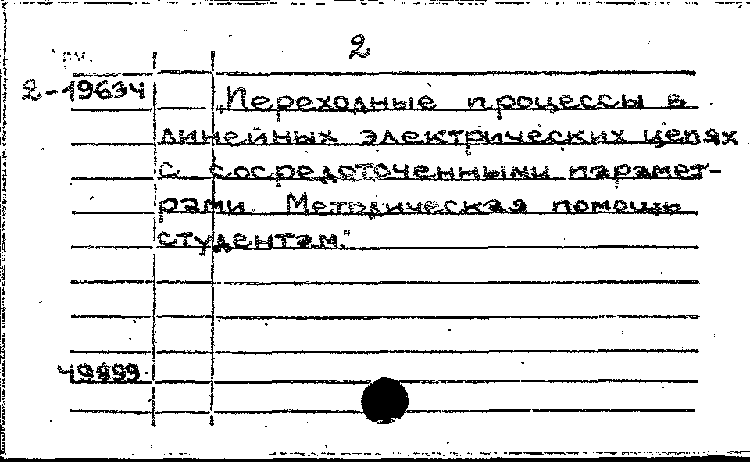 2
2-19634
„Переходные процессы в
линейных электрических цепях
с сосредоточенными парамет-
рами. Методическая помощь
студентам."